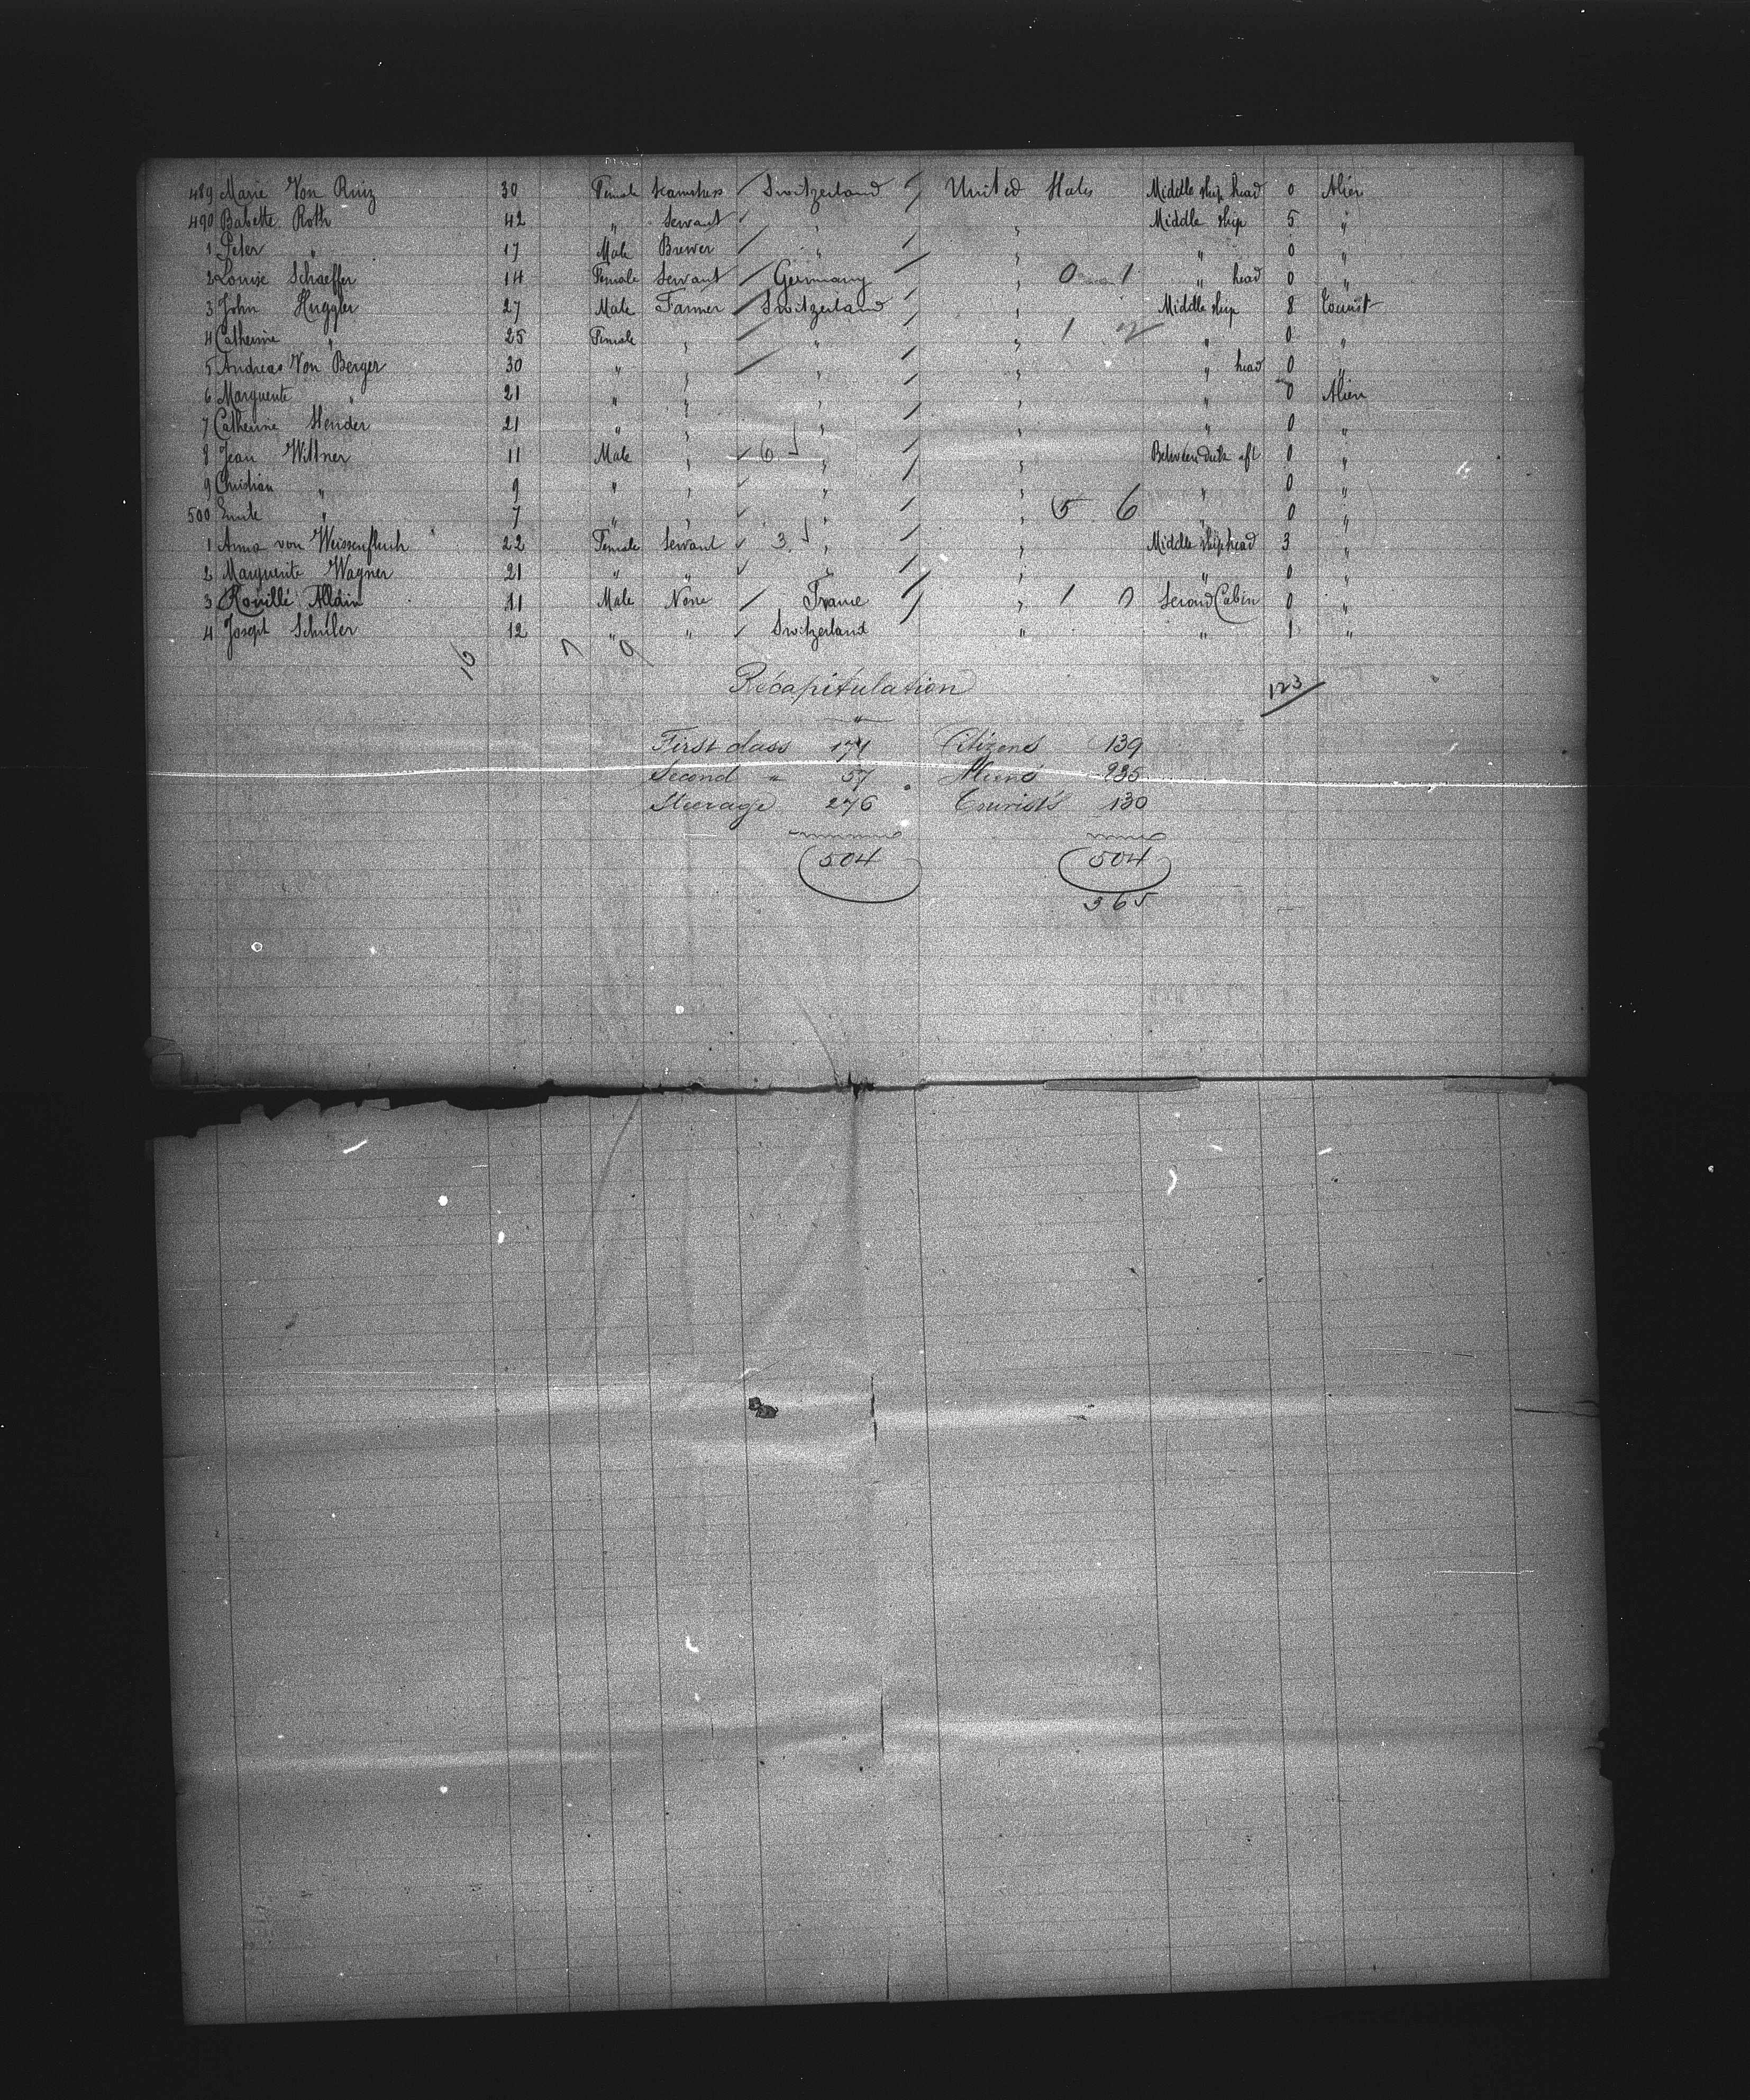 489 Marie Von Rüiz 30 Female Seamstress / Switzerland / United States Middle ship head 0 Alien
490 Babette Roth 42 " Servant " " Middle ship 5 "
1 Peter " 17 Male Brewer / " / " " 0 "
2 Louise Schaeffer 14 Female Servant / Germany / " 0 1 " head 0 "
3 John Huggler 27 Male Farmer / Switzerland / " Middle ship 8 Tourist
4 Catherine " 25 Female " / " / " 1 2 " 0 "
5 Andreas Von Berger 30 " " / " / " " head 0 "
6 Marguerite " 21 " " " / " " 0 Alien
7 Catherine 21 " " " / " " 0 "
8 Jean Wittner 11 Male " 6 " / " Between Deck aft 0 "
9 Christian " 9 " " " / " " 0 "
500 Emile " 7 " " " / " 5 6 " 0 "
1 Anna von Weissenfluh 22 Female Servant 3 " / " Middle ship head 3 "
2 Marguerite Wagner 21 " " " / " " 0 "
3 Rouillé Alldin 11 Male None / France / " 1 0 Second Cabin 0 "
4 Joseph Schuler 12 " " / Switzerland " " 1 "
16 7 9
Récapitulation 123
"
First class 171 Citizens 139
Second " 57 Aliens 235
Steerage 276 Tourists 130
504 504
365